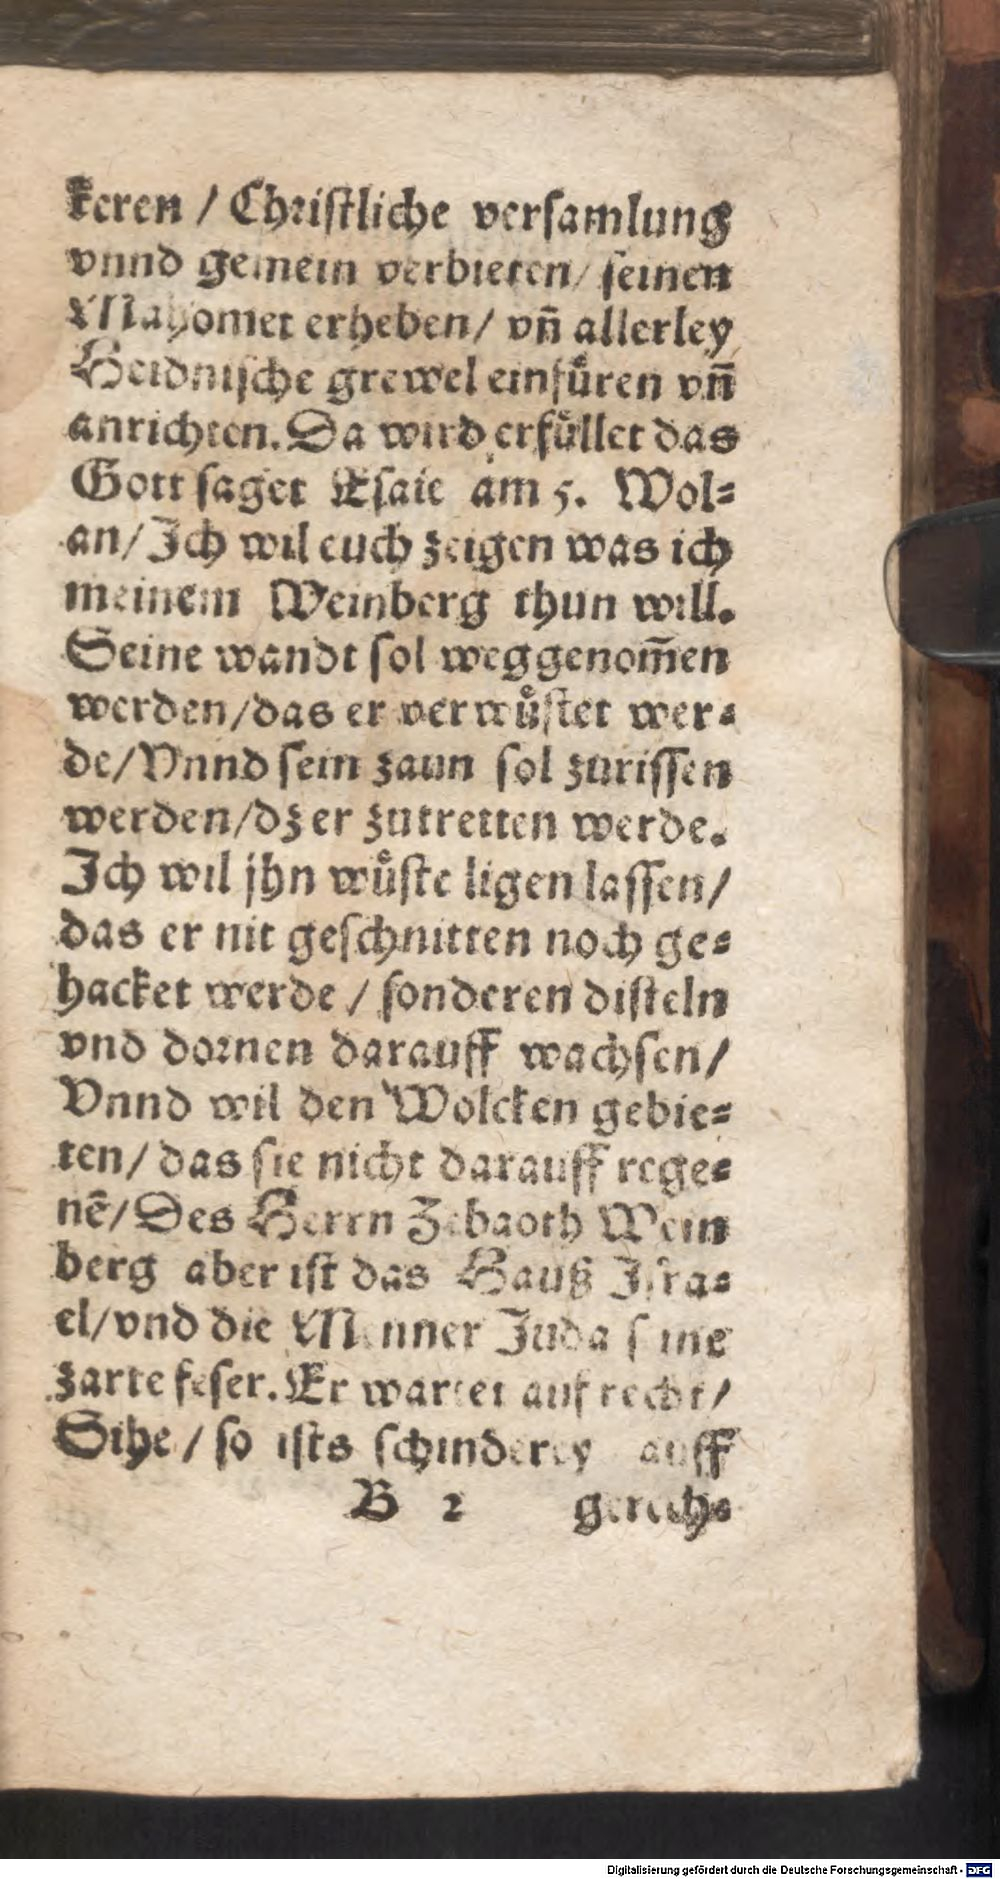 keren / Christliche versamlung
vnnd gemein verbieten / seinen
Mahomet erheben / vñ allerley
Heidnische grewel einfuͤren vñ
anrichten. Da wird erfuͤllet das
Gott saget Esaie am 5. Wol=
an / Ich wil euch zeigen was ich
meinem Weinberg thun will.
Seine wandt sol weggenom̃en
werden / das er verwuͤstet wer=
de / Vnnd sein zaun sol zurissen
werden / dz er zutretten werde.
Ich wil jhn wuͤste ligen lassen /
das er nit geschnitten noch ge=
hacket werde / sonderen disteln
vnd dornen darauff wachsen /
Vnnd wil den Wolcken gebie=
ten / das sie nicht darauff rege=
nẽ / Des Herrn Zebaoth Wein
berg aber ist das Hauß Isra=
el / vnd die Menner Juda seine
zarte feser. Er wartet auf recht /
Sihe / so ists schinderey auff
B 2 gerech=
Digitalisierung gefördert durch die Deutsche Forschungsgemeinschaft - DFG